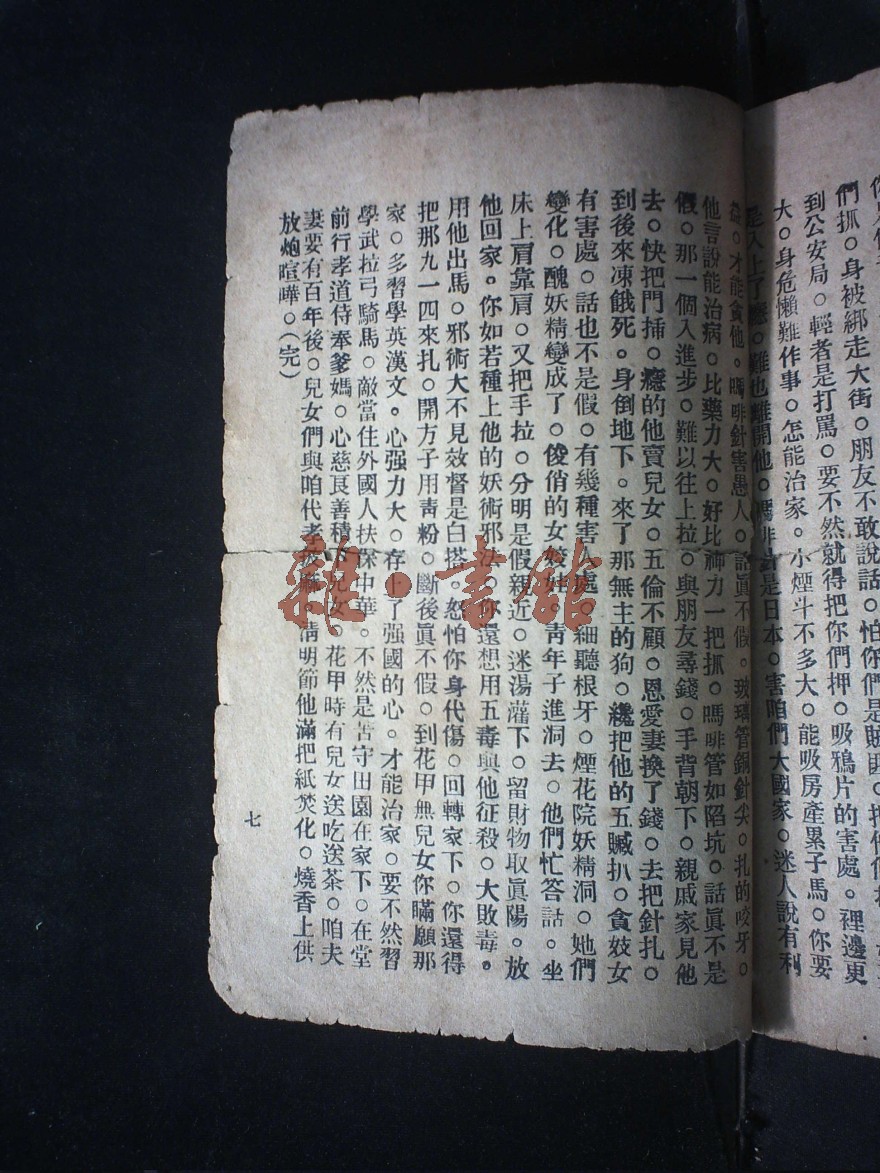 們抓。身被綁走大街。朋友不敢說話。怕你們是賊匪。把你
到公安局。輕者是打罵。要不然就得把你們押。吸鴉片的害處。裡邊更
大。身危懶難作事。怎能治家。小煙斗不多大。能吸房產累子馬。你要
是入上了癮。難也難開他。嗎啡針是日本。害咱們大國家。迷人說有利
益。才能貪他。嗎啡針害愚人。話眞不假。玻璃管銅針尖。扎的咬牙。
他言說能治病。比藥力大。好比神力一把抓。嗎啡管如陷坑。話眞不是
假。那一個入進步。難以往上拉。與朋友尋錢。手背朝下。親戚家見他
去。快把門挿。癮的他賣兒女。五倫不顧。恩愛妻換了錢。去把針扎。
到後來凍餓死。身倒地下。來了那無主的狗。纔把他的五贓扒。貪妓女
有害處。話也不是假。有幾種害人處。細聽根牙。煙花院妖精洞。她們
變化。醜妖精變成了。俊俏的女妓娃。靑年子進洞去。他們忙答話。坐
床上肩靠肩。又把手拉。分明是假親近。迷湯灌下。留財物取眞陽。放
他回家。你如若種上他的妖術邪法。你還想用五毒與他征殺。大敗毒。
用他出馬。邪術大不見效督是白搭。恕怕你身代傷。回轉家下。你還得
把那九一四來扎。開方子用靑粉。斷後眞不假。到花甲無兒女你瞞願那
家。多習學英漢文。心强力大。存上了强國的心。才能治家。要不然習
學武拉弓騎馬。敵當住外國人扶保中華。不然是苦守田園在家下。在堂
前行孝道侍奉爹媽。心慈良善積下兒女。花甲時有兒女送吃送茶。咱夫
妻要有百年後。兒女們與咱代孝披麻。淸明節他滿把紙焚化。燒香上供
放炮喧嘩。(完)
七
雜·書館